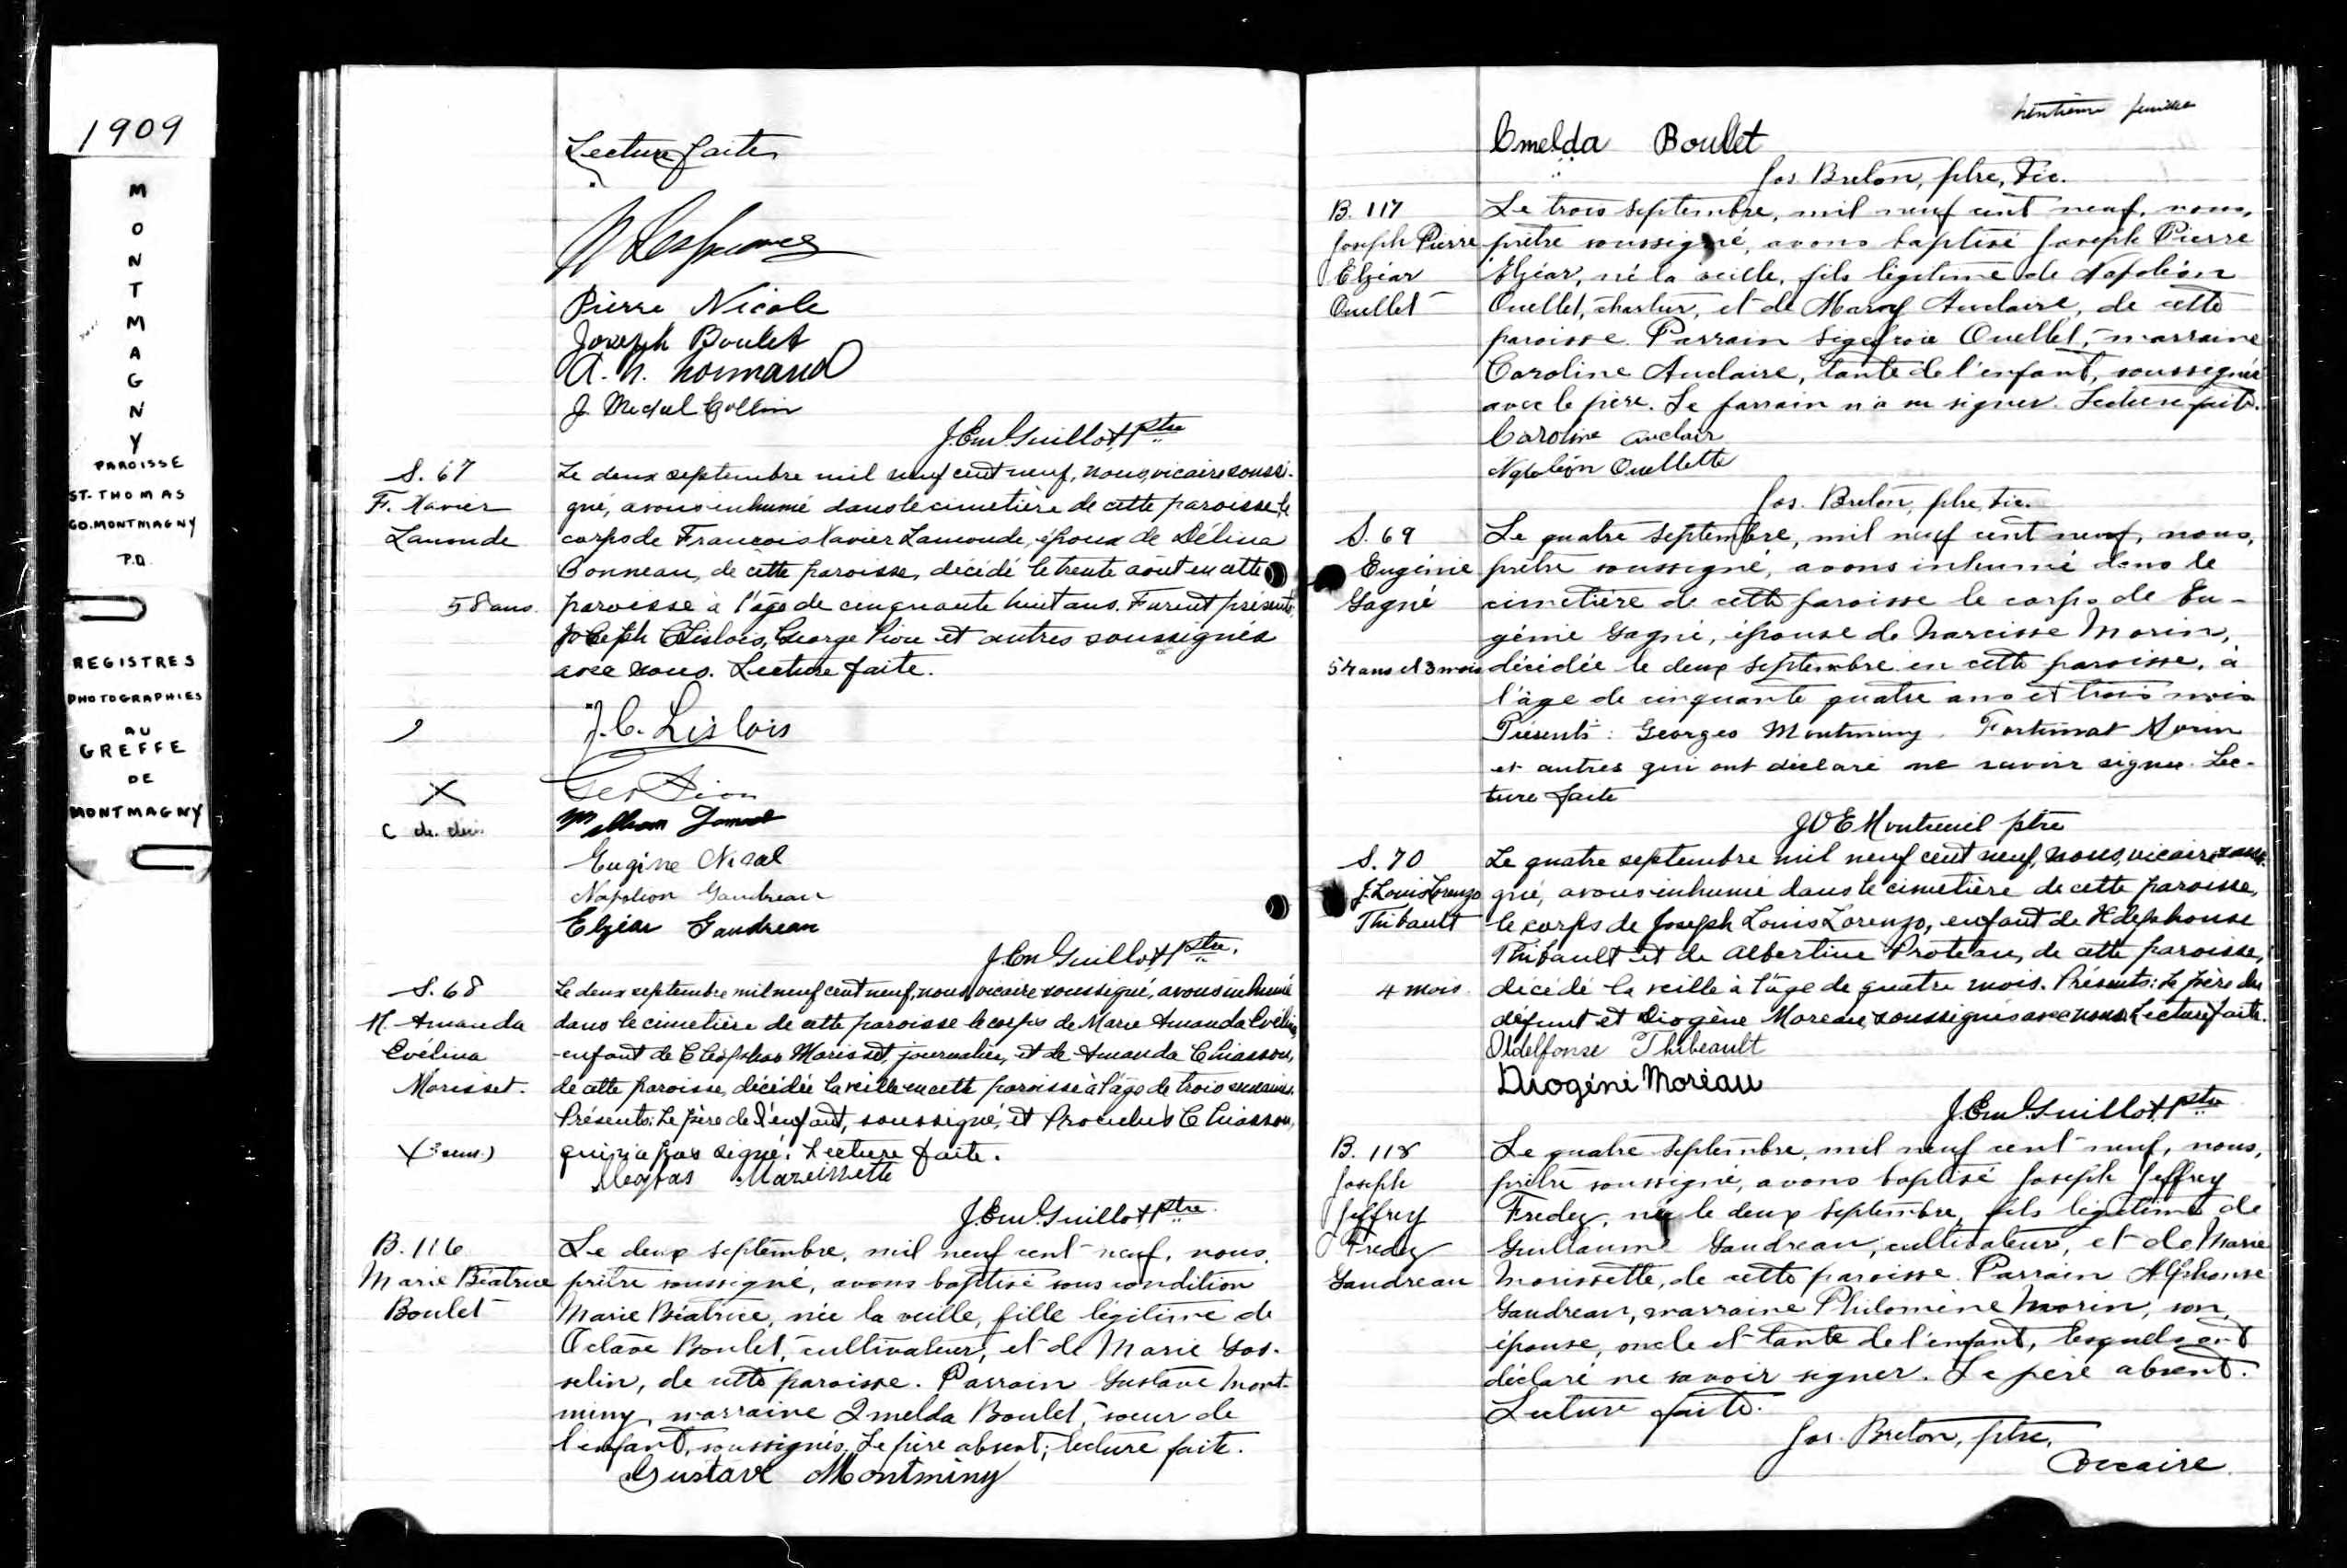 1909
MONTMAGNY
PAROISSE
ST-THOMAS
CO. MONTMAGNY
P.Q.
REGISTRES
PHOTOGRAPHIES
AU
GREFFE
DE
MONTMAGNY
Lecture faite
Pierre Nicole
Joseph Boulet
A. N. Normand
J. Collin
J. Em. Guillot, ptre
S. 67
F. Xavier
Lamonde
58 ans.
Le deux septembre mil neuf cent neuf, nous, vicaire soussi-
gné, avons inhumé dans le cimetière de cette paroisse, le
corps de François Xavier Lamonde, époux de Délina
Bonneau, de cette paroisse, décédé le trente août en cette
paroisse à l'âge de cinquante huit ans. Furent présents
Joseph C. Lislois, George Dion et autres soussignés
avec nous. Lecture faite.
J. C. Lislois
Geo Dion
Eugène Nicol
Napoléon Gaudreau
Elzéar Gaudreau
J. Em Guillot, ptre.
S. 68
M. Amanda
Evélina
Morisset.
(3 sem.)
Le deux septembre mil neuf cent neuf, nous, vicaire soussigné, avons inhumé
dans le cimetière de cette paroisse le corps de Marie Amanda Evélina,
enfant de Cléophas Morisset, journalier, et de Amanda Chiasson,
de cette paroisse, décédée la veille en cette paroisse à l'âge de trois semaines.
Présents: Le père de l'enfant, soussigné, et Proculus Chiasson,
qui n'a pas signé. Lecture faite.
Cleophas Mareissette
J. Em. Guillot ptre.
B. 116
Marie Béatrice
Boulet
Le deux septembre, mil neuf cent neuf, nous,
prêtre soussigné, avons baptisé sous condition
Marie Béatrice, née la veille, fille légitime de
Octave Boulet, cultivateur, et de Marie Gos-
selin, de cette paroisse. Parrain Gustave Mont-
miny, marraine Imelda Boulet, soeur de
l'enfant, soussignés. Le père absent; lecture faite.
Gustave Montminy
trentième feuillet
Emelda Boulet
Jos. Breton, ptre, vic.
B. 117
Joseph Pierre
Elzéar
Ouellet
Le trois septembre, mil neuf cent neuf, nous,
prêtre soussigné, avons baptisé Joseph Pierre
Elzéar, né la veille, fils légitime de Napoléon
Ouellet, et de Mary Auclaire, de cette
paroisse. Parrain Sigefroie Ouellet, marraine
Caroline Auclaire, tante de l'enfant, soussignée
avec le père. Le parrain n'a su signer. Lecture faite.
Caroline Auclair
Napoléon Ouellette
Jos. Breton, ptre, vic.
S. 69
Eugénie
Gagné
54 ans et 3 mois
Le quatre septembre, mil neuf cent neuf, nous,
prêtre soussigné, avons inhumé dans le
cimetière de cette paroisse le corps de Eu-
génie Gagné, épouse de Narcisse Morin,
décédée le deux septembre en cette paroisse, à
l'âge de cinquante quatre ans et trois mois
Présents: Georges Montminy, Fortunat Morin
et autres qui ont déclaré ne savoir signer. Lec-
ture faite
J O E Montreuil ptre
S. 70
J. Louis Lorenzo
Thibault
4 mois
Le quatre septembre mil neuf cent neuf, nous, vicaire soussi-
gné, avons inhumé dans le cimetière de cette paroisse,
le corps de Joseph Louis Lorenzo, enfant de Ildephonse
Thibault et de Albertine Proteau, de cette paroisse,
décédé la veille à l'âge de quatre mois. Présents: Le père du
défunt et Diogène Moreau, soussignés avec nous. Lecture faite.
Oldelfonse Thibeault
Diogéne Moreau
J. Em. Guillot, ptre
B. 118
Joseph
Jeffrey
Fredez
Gaudreau
Le quatre septembre, mil neuf cent neuf, nous,
prêtre soussigné, avons baptisé Joseph Jeffrey
Fredez, né le deux septembre, fils légitime de
Guillaume Gaudreau, cultivateur, et de Marie
Morissette, de cette paroisse. Parrain Alphonse
Gaudreau, marraine Philomène Morin, son
épouse, oncle et tante de l'enfant, lesquels ont
déclaré ne savoir signer. Le père absent.
Lecture faite.
Jos. Breton, ptre,
vicaire